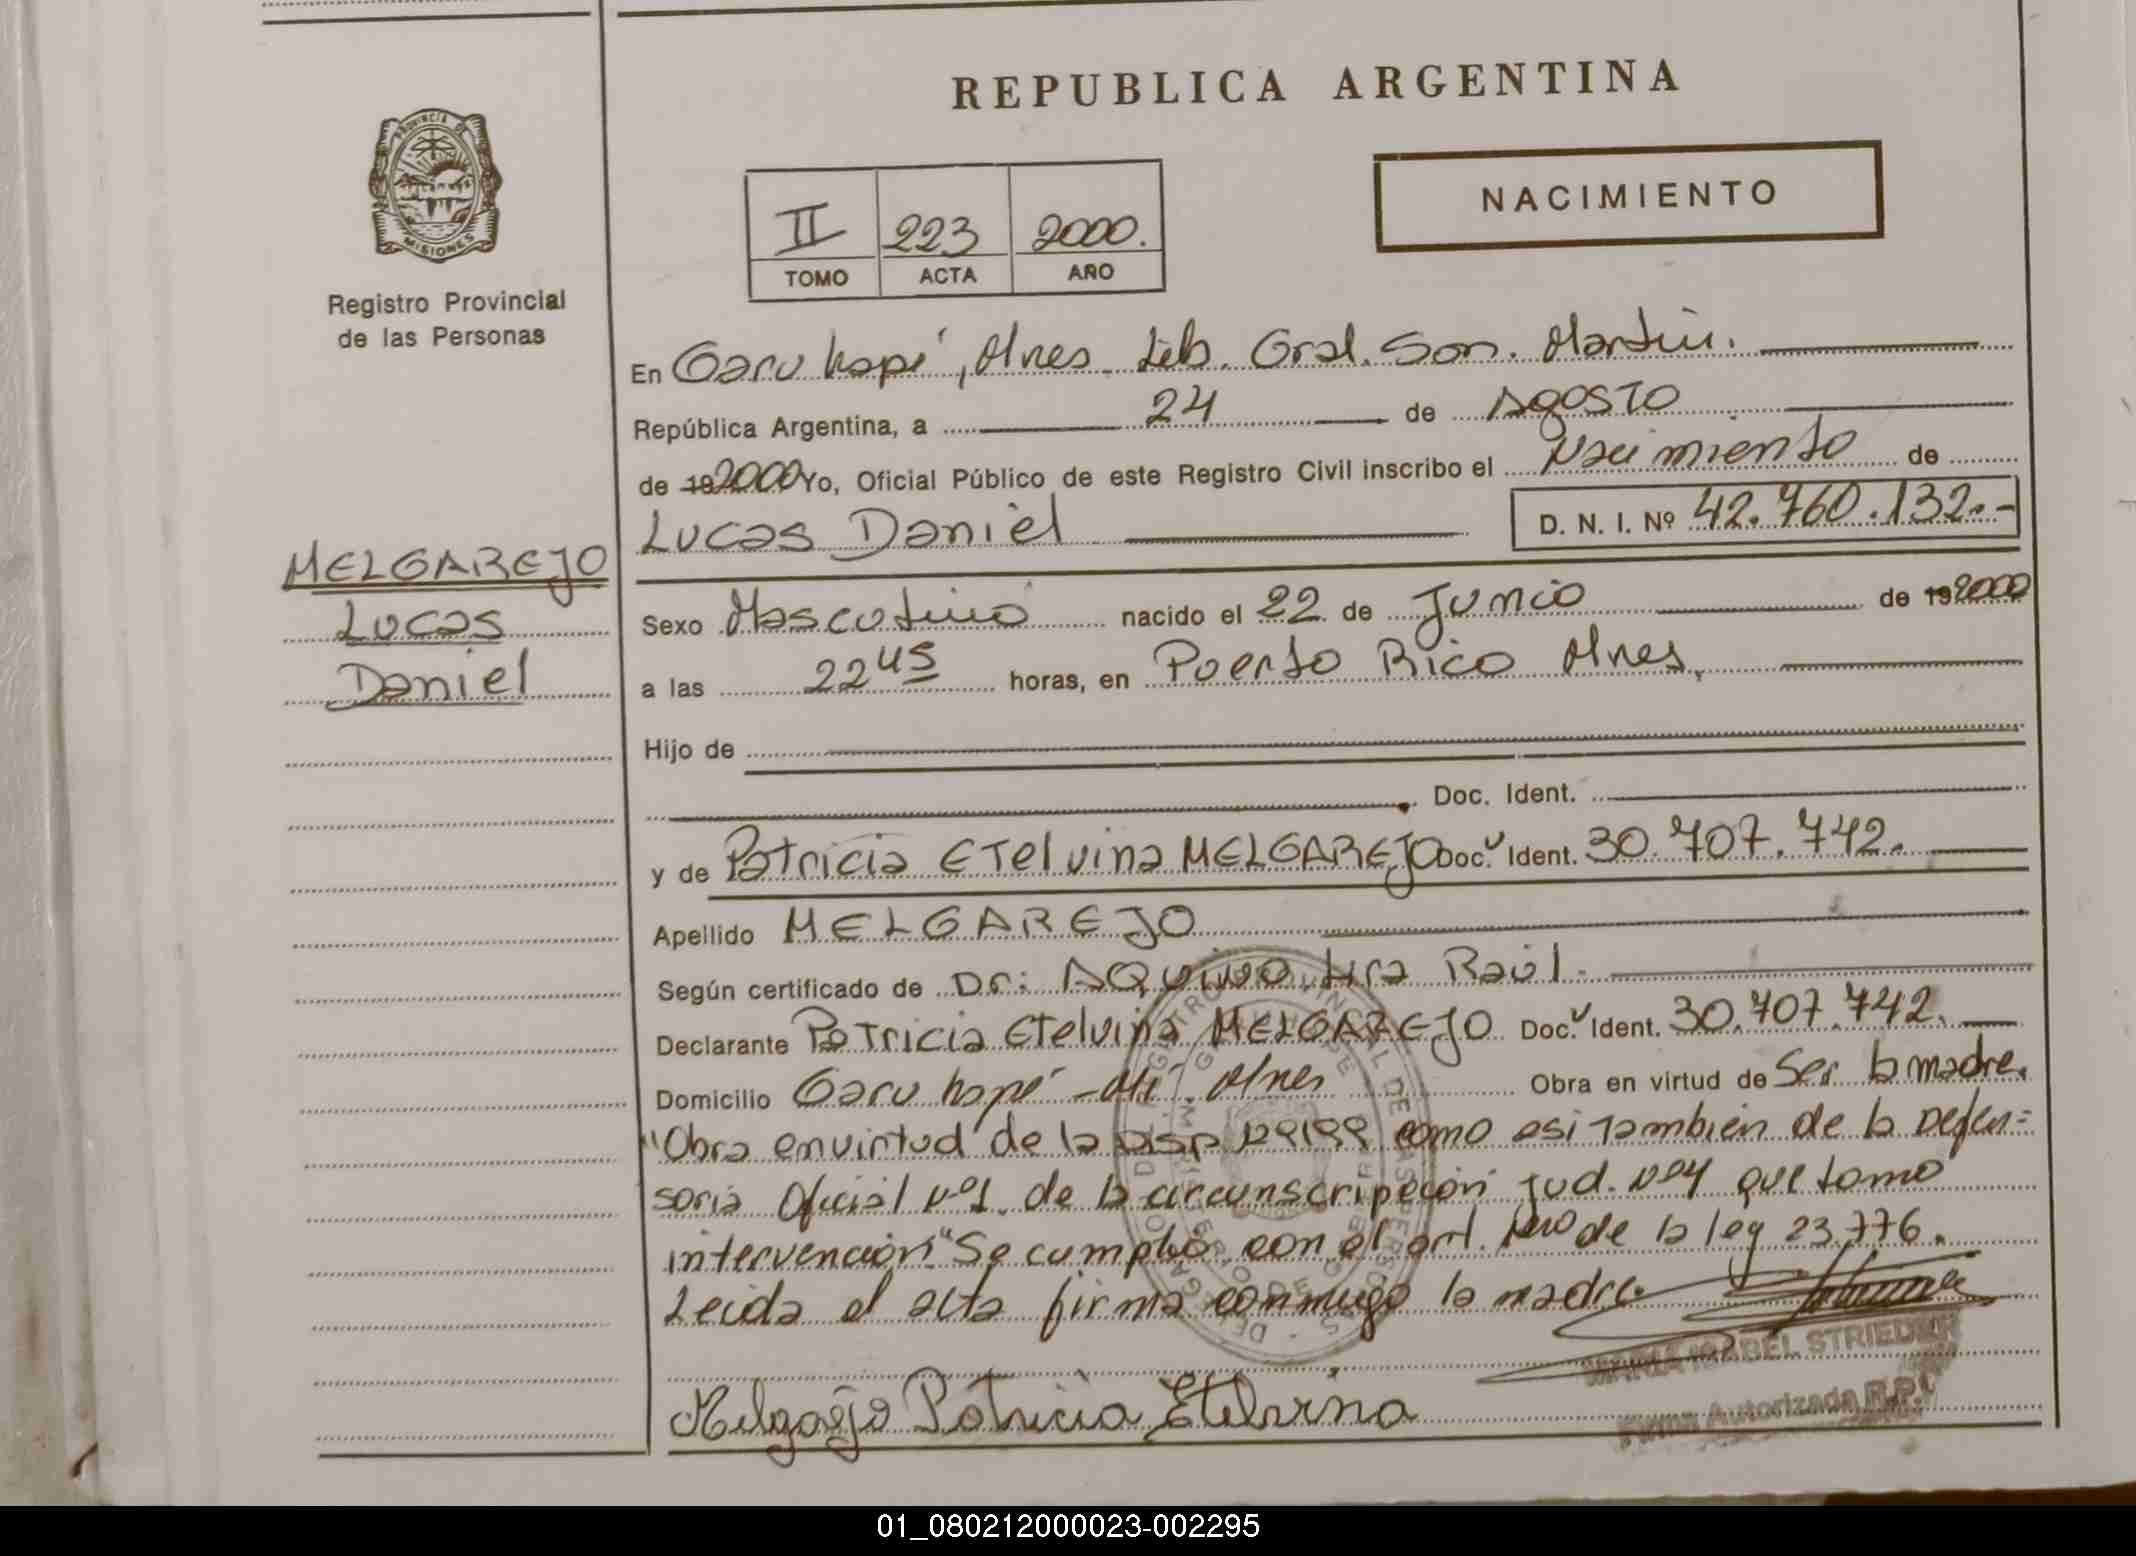 REPUBLICA ARGENTINA
PROVINCIA DE
MISIONES
Registro Provincial
de las Personas
NACIMIENTO
II 223 2000.
TOMO ACTA AÑO
En Garuhapé, Mnes. Lib. Gral. San. Martin.
República Argentina, a 24 de Agosto
de 19 2000 Yo, Oficial Público de este Registro Civil inscribo el Nacimiento de
Lucas Daniel D. N. I. Nº 42.760.132.-
MELGAREJO
Lucas
Daniel
Sexo Masculino nacido el 22 de Junio de 19 2000
a las 22 45 horas, en Puerto Rico Mnes,
Hijo de
Doc. Ident.
y de Patricia Etelvina MELGAREJO Doc. Ident. 30.707.742.
Apellido MELGAREJO
Según certificado de Dr: AQUINO, Raúl.
Declarante Patricia Etelvina MELGAREJO Doc. Ident. 30.707.742.
Domicilio Garuhapé - Mnes Obra en virtud de Ser la madre.
"Obra en virtud de la Disp como asi Tambien de la Defen=
soria Oficial Nº1. de la circunscripción Jud. Nº4 que tomo
intervención" Se cumplió con el art. de la ley 23.776.
Leida el acta firma conmigo la madre.
MARIA ISABEL STRIEDER
Firma Autorizada R.P.
Melgarejo Patricia Etelvina
01_080212000023-002295